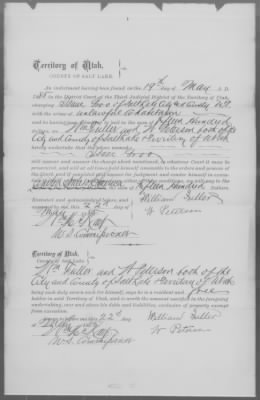 Territory of Utah,
COUNTY OF SALT LAKE.
An indictment having been found on the 19th day of May A. D.
in the District Court of the Third Judicial District of the Territory of Utah,
charging
with the crime of unlawful cohabitation
and he having been to bail in the sum of Fifteen Hundred
dollars, we Wm Fuller and W Peterson both of the
City and County of Salt Lake Territory of Utah
hereby undertake that the above named
will appear and answer the charge above mentioned, in whatever Court it may be
prosecuted, and will at all times render himself amenable to the orders and process of
the Court, and if convicted will appear for judgment and render himself in
execution thereof, or if he fail to perform either of these conditions, we will pay to the
United States of America Fifteen Hundred Dollars.
Executed and acknowledged before, and
approved by me this 22d
May
William Fuller
W Peterson
U.S. Commissioner
Territory of Utah,
COUNTY OF SALT LAKE.
Wm Fuller and W Peterson both of the
City and County of Salt Lake Territory of Utah
being each duly sworn each for himself, says he is a resident and free
holder in said Territory of Utah, and is worth the amount specified in the foregoing
undertaking, over and above his debts and liabilities, exclusive of property exempt
from execution.
22d day
William Fuller
W Peterson
U.S. Commissioner